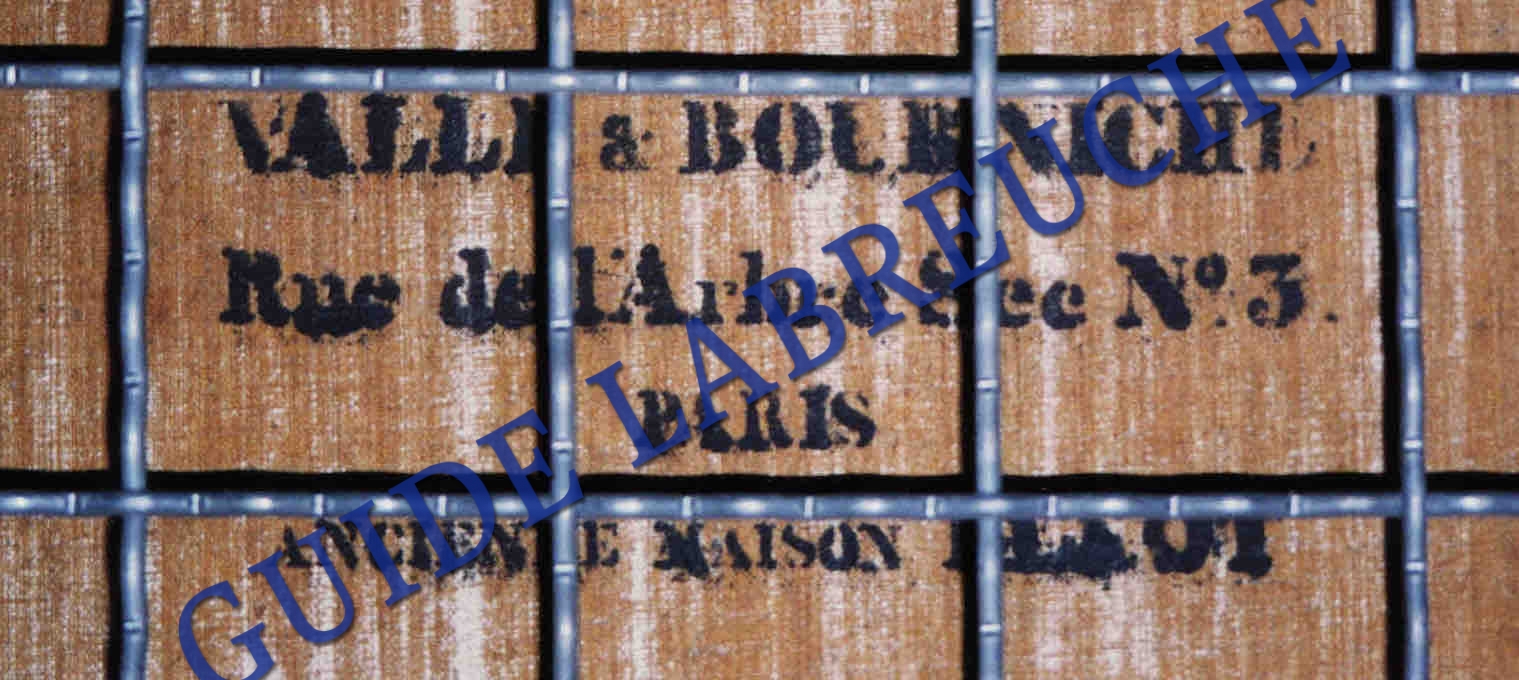 VALLÉ & BOURNICHE
Rue de l'Arbre Sec Nº 3.
PARIS
ANCIENNE MAISON
GUIDE LABREUCHE